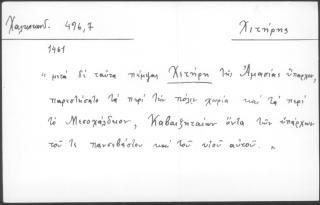 Χαλκοκονδ. 496,7 Χιτήρης
1461
„ μετά δέ ταῦτα πέμψας Χιτήρη τῆς Ἀμασίας ὕπαρχον,
παρεστήσατο τά περί τήν πόλιν χωρία καί τά περί
τό Μεσοχάλδιον, Καβασιτᾶν ὄντα τῶν ὑπάρχων
τοῦ τε πανσεβάστου καί τοῦ υἱοῦ αὐτοῦ. „